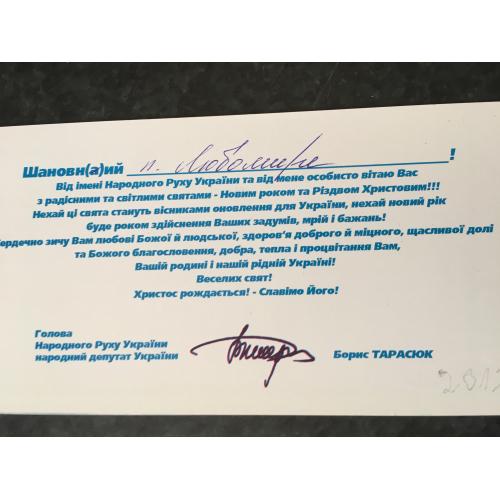 Шановн(а)ий п. Любомире !
Від імені Народного Руху України та від мене особисто вітаю Вас
з радісними та світлими святами - Новим роком та Різдвом Христовим!!!
Нехай ці свята стануть вісниками оновлення для України, нехай новий рік
буде роком здійснення Ваших задумів, мрій і бажань!
Сердечно зичу Вам любові Божої й людської, здоров'я доброго й міцного, щасливої долі
та Божого благословення, добра, тепла і процвітання Вам,
Вашій родині і нашій рідній Україні!
Веселих свят!
Христос рождається! - Славімо Його!
Голова
Народного Руху України
народний депутат України
Борис ТАРАСЮК